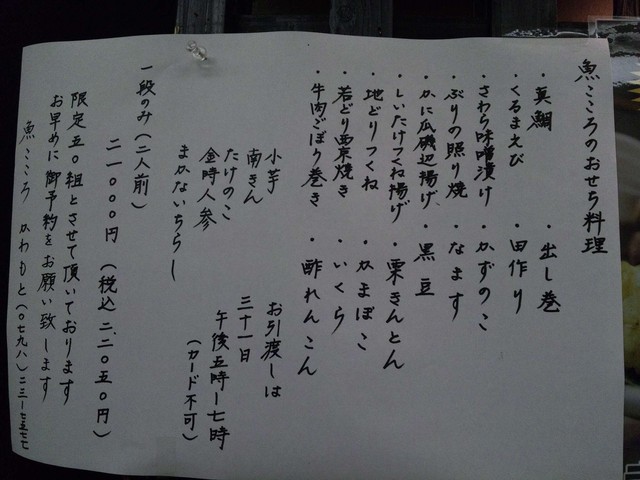 魚こころのおせち料理
・真鯛
・くるまえび
・さわら味噌漬け
・ぶりの照り焼
・かに瓜磯辺揚げ
・しいたけつくね揚げ
・地どりつくね
・若どり栗焼き
・牛肉ごぼう巻き
・出し巻
・田作り
・かずのこ
・なます
・黒豆
・栗きんとん
・かまぼこ
・いくら
・酢れんこん
小芋
南きん
たけのこ
金時人参
まかないちらし
お引渡しは
三十一日
午後五時ー七時
(カード不可)
一段のみ(二人前)
二一〇〇〇円(税込二二〇五〇円)
限定五〇組とさせて頂いております
お早めに御予約をお願い致します
魚こころ かわもと(〇七九八)二三ー七五七七